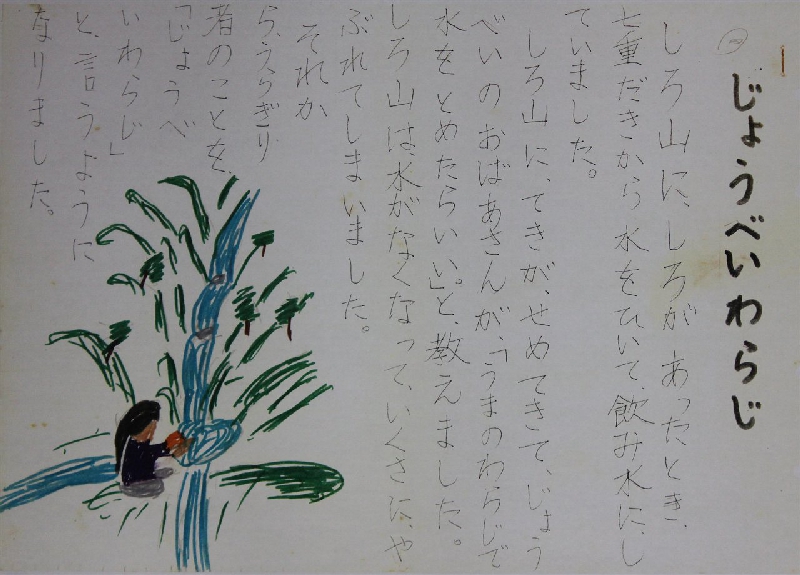 じょうべいわらじ
しろ山に、しろが、あったとき、
七重だきから水をひいて、飲み水に、し
ていました。
しろ山に、てきが、せめてきて、じょう
べいのおばあさんが、「うまのわらじで
水をとめたらいい。」と、教えました。
しろ山は水がなくなって、いくさに、や
ぶれてしまいました。
それか
ら、うらぎり
者のことを
「じょうべ
いわらじ」
と、言うように
なりました。